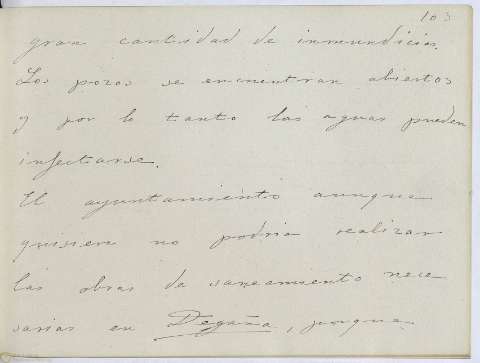 103
gran cantidad de inmundicias.
Los pozos se encuentran abiertos
y por lo tanto las aguas pueden
infectarse.
El ayuntamiento aunque
quisiera no podria realizar
las obras de saneamiento nece
sarias en Degaña, porque